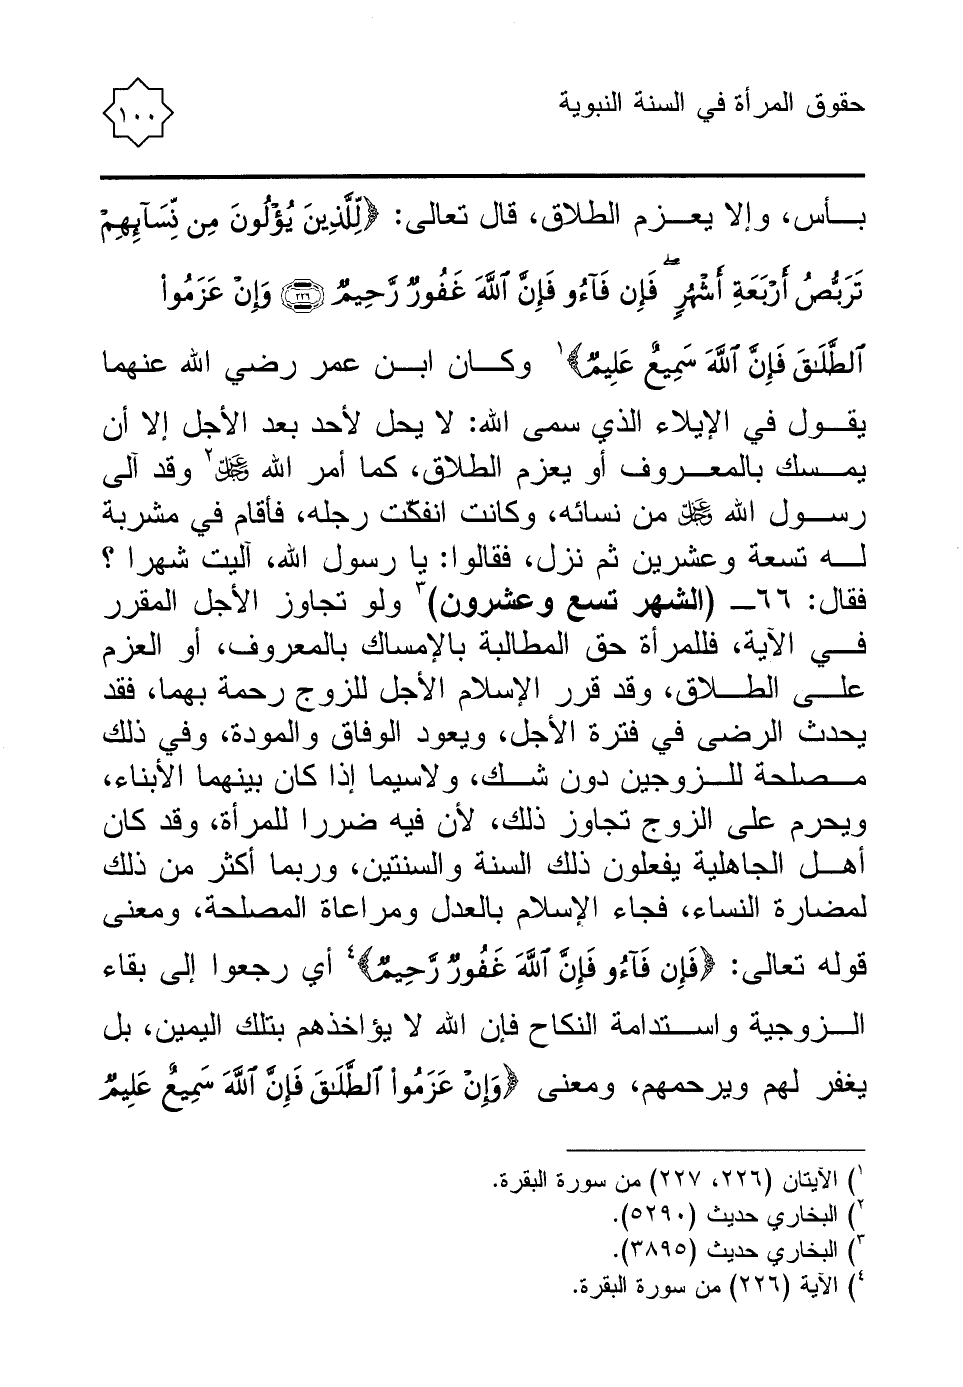 حقوق المرأة في السنة النبوية
١٠٠
بـأس، وإلا يعـزم الطلاق، قال تعالى: ﴿لِّلَّذِينَ يُؤۡلُونَ مِن نِّسَآئِهِمۡ
تَرَبُّصُ أَرۡبَعَةِ أَشۡهُرٖۖ فَإِن فَآءُو فَإِنَّ ٱللَّهَ غَفُورٞ رَّحِيمٞ ٢٢٦ وَإِنۡ عَزَمُواْ
ٱلطَّلَٰقَ فَإِنَّ ٱللَّهَ سَمِيعٌ عَلِيمٞ﴾١ وكـان ابـن عمر رضي الله عنهما
يقـول في الإيلاء الذي سمى الله: لا يحل لأحد بعد الأجل إلا أن
يمسك بالمعـروف أو يعزم الطلاق، كما أمر الله ﷺ٢ وقد آلى
رسـول الله ﷺ من نسائه، وكانت انفكّت رجله، فأقام في مشربة
لـه تسعة وعشرين ثم نزل، فقالوا: يا رسول الله، آليت شهرا ؟
فقال: ٦٦ـ (الشهر تسع وعشرون)٣ ولو تجاوز الأجل المقرر
فـي الآية، فللمرأة حق المطالبة بالإمساك بالمعروف، أو العزم
علـى الطـلاق، وقد قرر الإسلام الأجل للزوج رحمة بهما، فقد
يحدث الرضى في فترة الأجل، ويعود الوفاق والمودة، وفي ذلك
مـصلحة للـزوجين دون شـك، ولاسيما إذا كان بينهما الأبناء،
ويحرم على الزوج تجاوز ذلك، لأن فيه ضررا للمرأة، وقد كان
أهـل الجاهلية يفعلون ذلك السنة والسنتين، وربما أكثر من ذلك
لمضارة النساء، فجاء الإسلام بالعدل ومراعاة المصلحة، ومعنى
قوله تعالى: ﴿فَإِن فَآءُو فَإِنَّ ٱللَّهَ غَفُورٞ رَّحِيمٞ﴾٤ أي رجعوا إلى بقاء
الـزوجية واسـتدامة النكاح فإن الله لا يؤاخذهم بتلك اليمين، بل
يغفر لهم ويرحمهم، ومعنى ﴿وَإِنۡ عَزَمُواْ ٱلطَّلَٰقَ فَإِنَّ ٱللَّهَ سَمِيعٌ عَلِيمٞ
١) الآيتان (٢٢٦، ٢٢٧) من سورة البقرة.
٢) البخاري حديث (٥٢٩٠).
٣) البخاري حديث (٣٨٩٥).
٤) الآية (٢٢٦) من سورة البقرة.